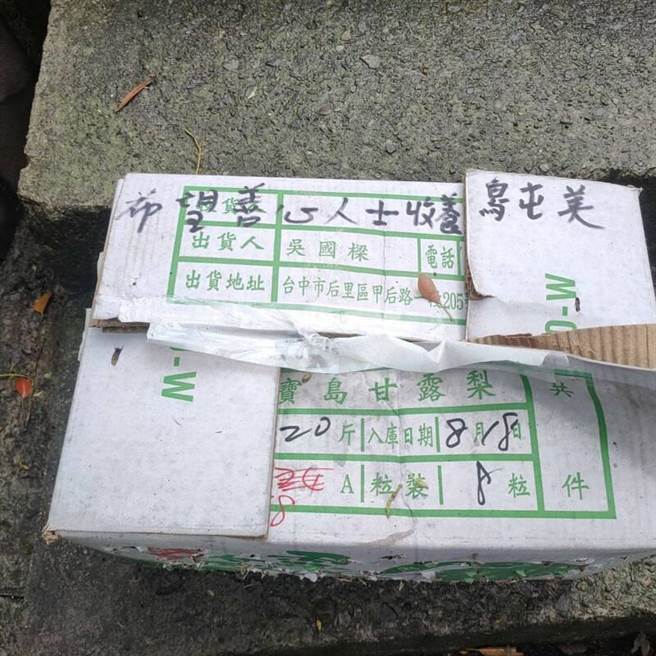 希望善心人士收養 烏屯美
出貨人 吳國樑 電話
出貨地址 台中市后里區甲后路 205
O-W
O-W
寶島甘露梨 共
20斤 入庫日期 8月18日
A 粒裝 8粒 件
8